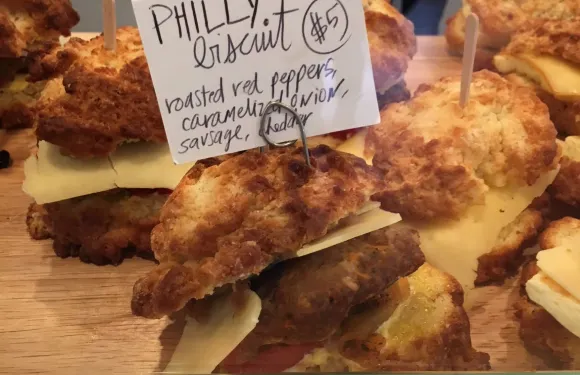 PHILLY
biscuit $5
roasted red peppers,
caramelized onion,
sausage, cheddar